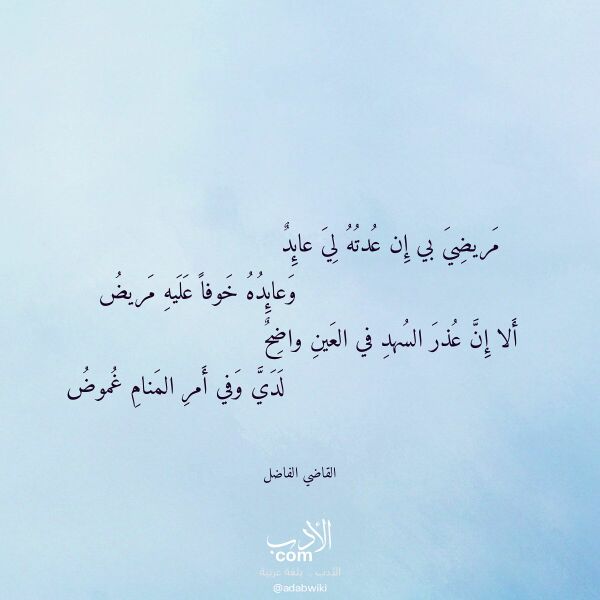 مَريضِيَ بي إِن عُدتُهُ لِيَ عائِدٌ
وَعائِدُهُ خَوفاً عَلَيهِ مَريضُ
أَلا إِنَّ عُذرَ السُهدِ في العَينِ واضِحٌ
لَدَيَّ وَفي أَمرِ المَنامِ غُموضُ
القاضي الفاضل
الأدب
com
الأدب .. بلغة عربية
@adabwiki